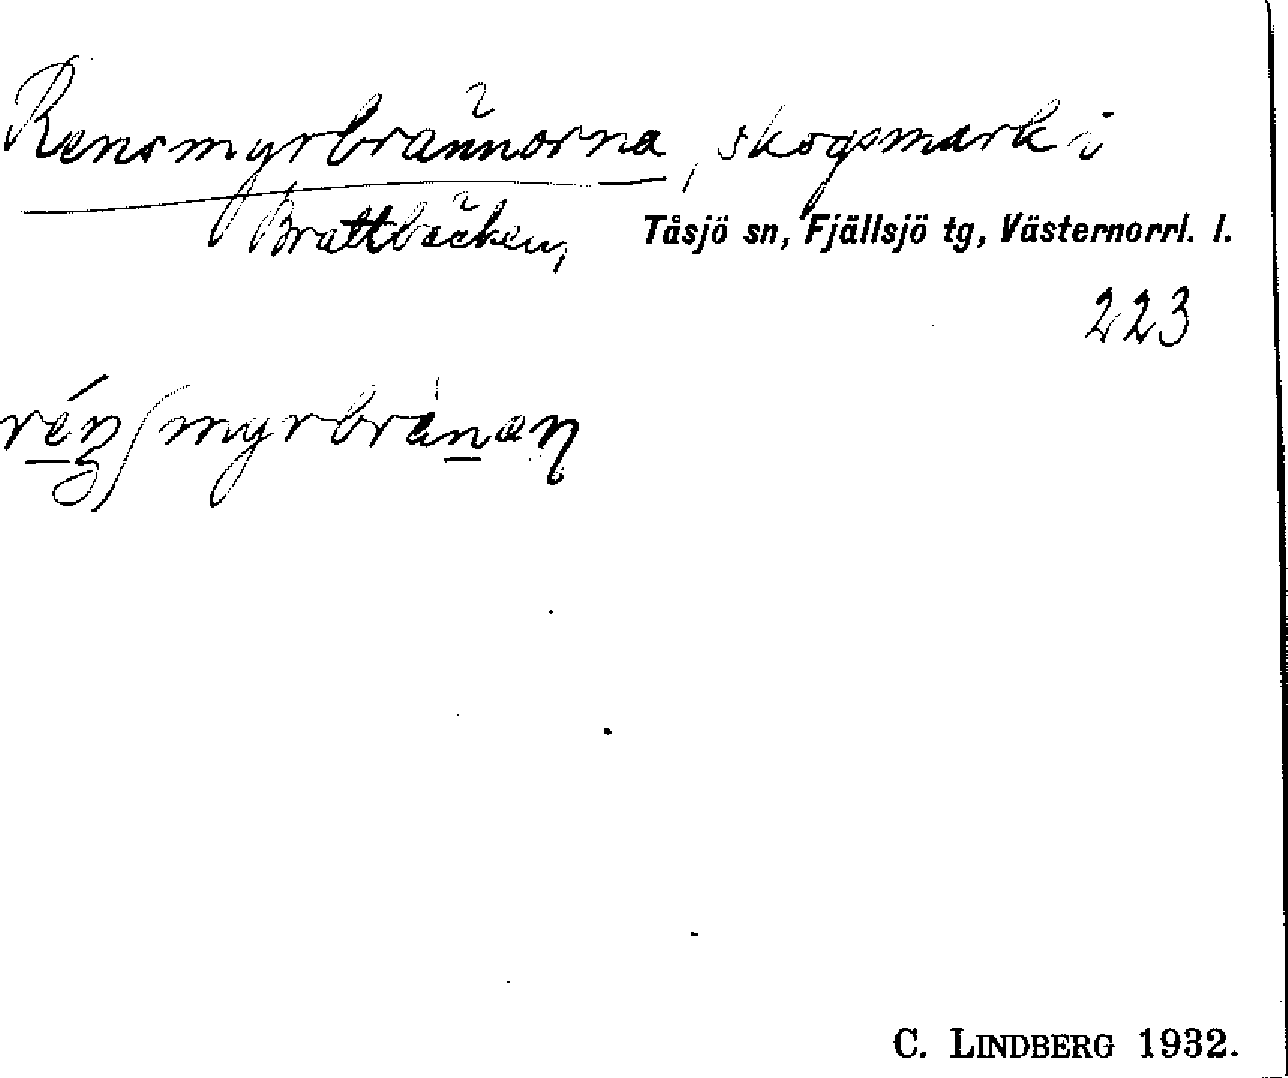 Rensmyrbrännorna, skogsmark i
Brattbäcken, Tåsjö sn, Fjällsjö tg, Västernorrl. l.
223
C. LINDBERG 1932.